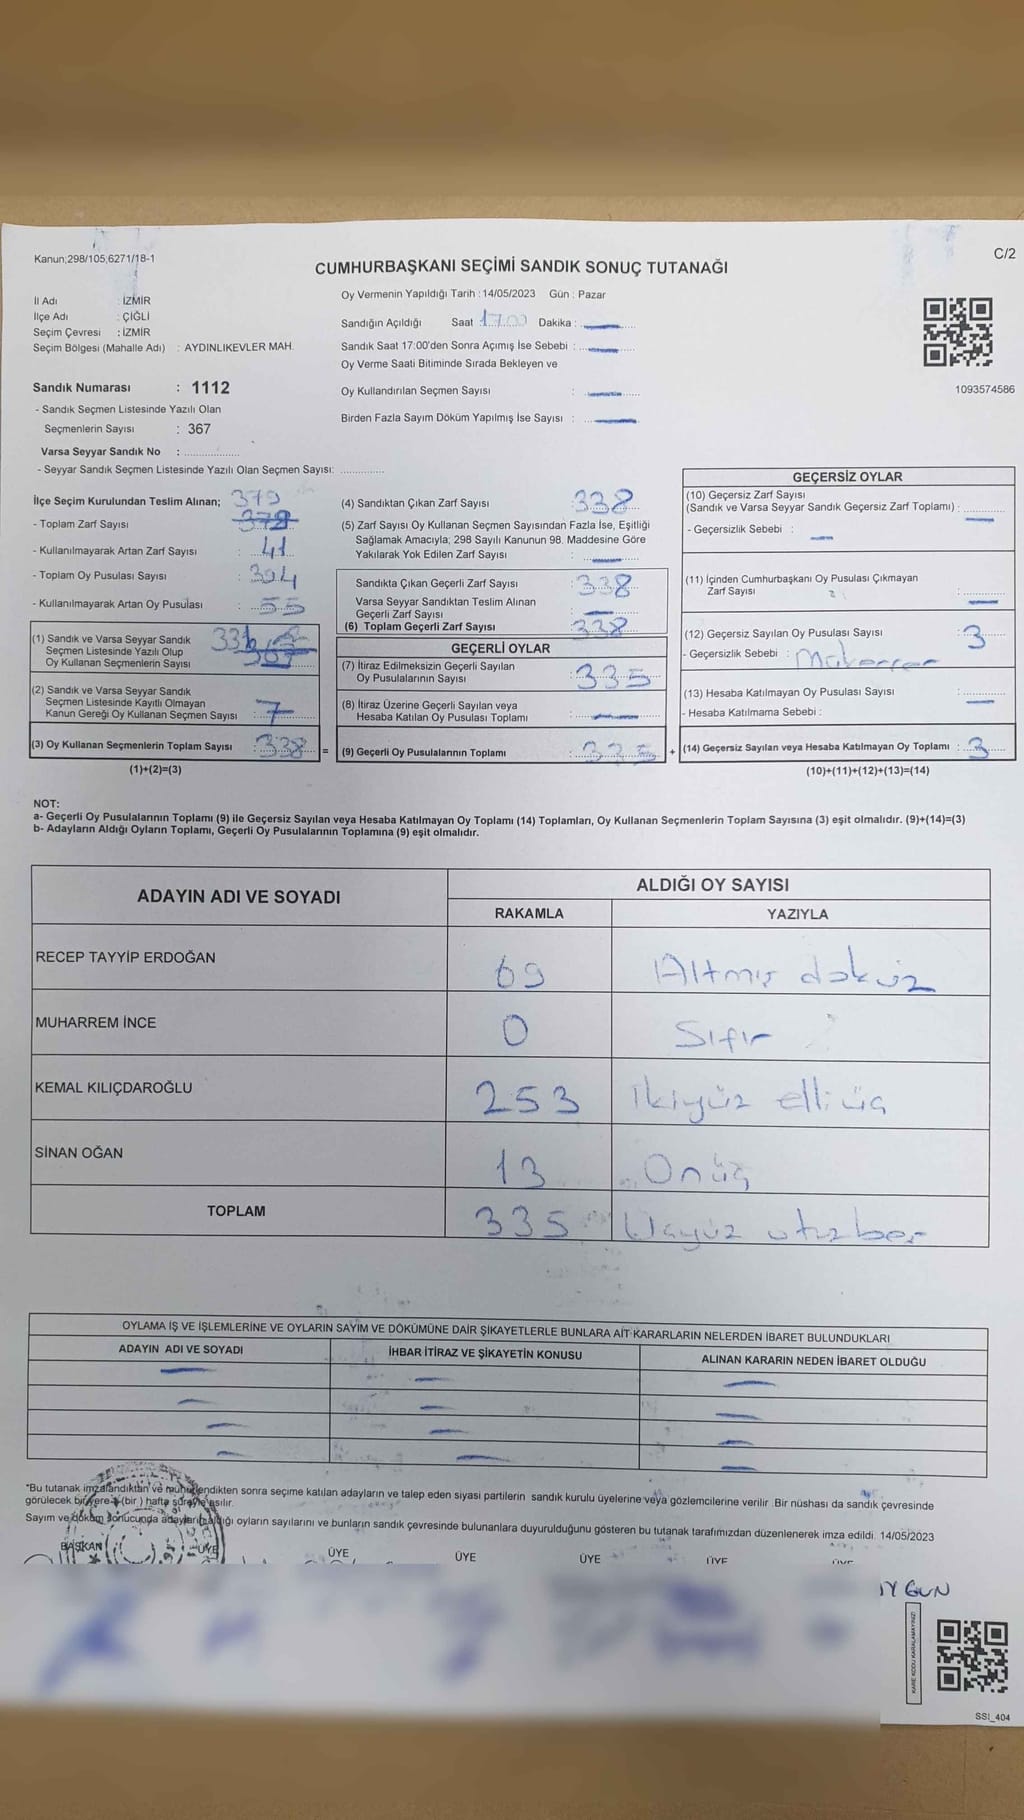 Kanun;298/105,6271/18-1
C/2
CUMHURBAŞKANI SEÇİMİ SANDIK SONUÇ TUTANAĞI
İl Adı : İZMİR
İlçe Adı : ÇİĞLİ
Seçim Çevresi : İZMİR
Seçim Bölgesi (Mahalle Adı) : AYDINLIKEVLER MAH.
Sandık Numarası : 1112
- Sandık Seçmen Listesinde Yazılı Olan
Seçmenlerin Sayısı : 367
Varsa Seyyar Sandık No :
- Seyyar Sandık Seçmen Listesinde Yazılı Olan Seçmen Sayısı:
Oy Vermenin Yapıldığı Tarih : 14/05/2023 Gün : Pazar
Sandığın Açıldığı Saat 17.00 Dakika :
Sandık Saat 17:00'den Sonra Açımış İse Sebebi :
Oy Verme Saati Bitiminde Sırada Bekleyen ve
Oy Kullandırılan Seçmen Sayısı :
Birden Fazla Sayım Döküm Yapılmış İse Sayısı :
1093574586
İlçe Seçim Kurulundan Teslim Alınan; 379
- Toplam Zarf Sayısı
- Kullanılmayarak Artan Zarf Sayısı : 41
- Toplam Oy Pusulası Sayısı : 394
- Kullanılmayarak Artan Oy Pusulası : 55
(1) Sandık ve Varsa Seyyar Sandık
Seçmen Listesinde Yazılı Olup
Oy Kullanan Seçmenlerin Sayısı
(2) Sandık ve Varsa Seyyar Sandık
Seçmen Listesinde Kayıtlı Olmayan
Kanun Gereği Oy Kullanan Seçmen Sayısı : 7
(3) Oy Kullanan Seçmenlerin Toplam Sayısı : 338 =
(1)+(2)=(3)
(4) Sandıktan Çıkan Zarf Sayısı 338
(5) Zarf Sayısı Oy Kullanan Seçmen Sayısından Fazla İse, Eşitliği
Sağlamak Amacıyla; 298 Sayılı Kanunun 98. Maddesine Göre
Yakılarak Yok Edilen Zarf Sayısı :
Sandıkta Çıkan Geçerli Zarf Sayısı : 338
Varsa Seyyar Sandıktan Teslim Alınan
Geçerli Zarf Sayısı :
(6) Toplam Geçerli Zarf Sayısı : 338
GEÇERLİ OYLAR
(7) İtiraz Edilmeksizin Geçerli Sayılan
Oy Pusulalarının Sayısı : 335
(8) İtiraz Üzerine Geçerli Sayılan veya
Hesaba Katılan Oy Pusulası Toplamı :
(9) Geçerli Oy Pusulalarının Toplamı : 335 +
GEÇERSİZ OYLAR
(10) Geçersiz Zarf Sayısı
(Sandık ve Varsa Seyyar Sandık Geçersiz Zarf Toplamı) :
- Geçersizlik Sebebi :
(11) İçinden Cumhurbaşkanı Oy Pusulası Çıkmayan
Zarf Sayısı :
(12) Geçersiz Sayılan Oy Pusulası Sayısı : 3
- Geçersizlik Sebebi : Mükerrer
(13) Hesaba Katılmayan Oy Pusulası Sayısı :
- Hesaba Katılmama Sebebi :
(14) Geçersiz Sayılan veya Hesaba Katılmayan Oy Toplamı : 3
(10)+(11)+(12)+(13)=(14)
NOT:
a- Geçerli Oy Pusulalarının Toplamı (9) ile Geçersiz Sayılan veya Hesaba Katılmayan Oy Toplamı (14) Toplamları, Oy Kullanan Seçmenlerin Toplam Sayısına (3) eşit olmalıdır. (9)+(14)=(3)
b- Adayların Aldığı Oyların Toplamı, Geçerli Oy Pusulalarının Toplamına (9) eşit olmalıdır.
ADAYIN ADI VE SOYADI ALDIĞI OY SAYISI
RAKAMLA YAZIYLA
RECEP TAYYİP ERDOĞAN 69 Altmış dokuz
MUHARREM İNCE 0 Sıfır
KEMAL KILIÇDAROĞLU 253 İkiyüz elli üç
SİNAN OĞAN 13 Onüç
TOPLAM 335 Üçyüz otuzbeş
OYLAMA İŞ VE İŞLEMLERİNE VE OYLARIN SAYIM VE DÖKÜMÜNE DAİR ŞİKAYETLERLE BUNLARA AİT KARARLARIN NELERDEN İBARET BULUNDUKLARI
ADAYIN ADI VE SOYADI İHBAR İTİRAZ VE ŞİKAYETİN KONUSU ALINAN KARARIN NEDEN İBARET OLDUĞU
*Bu tutanak imzalandıktan ve mühürlendikten sonra seçime katılan adayların ve talep eden siyasi partilerin sandık kurulu üyelerine veya gözlemcilerine verilir .Bir nüshası da sandık çevresinde
görülecek bir yere 1 (bir ) hafta süreyle asılır.
Sayım ve döküm sonucunda adayların aldığı oyların sayılarını ve bunların sandık çevresinde bulunanlara duyurulduğunu gösteren bu tutanak tarafımızdan düzenlenerek imza edildi. 14/05/2023
BAŞKAN ÜYE ÜYE ÜYE ÜYE ÜYE ÜYE
KARE KODU KARALAMAYINIZ!
SSI_404